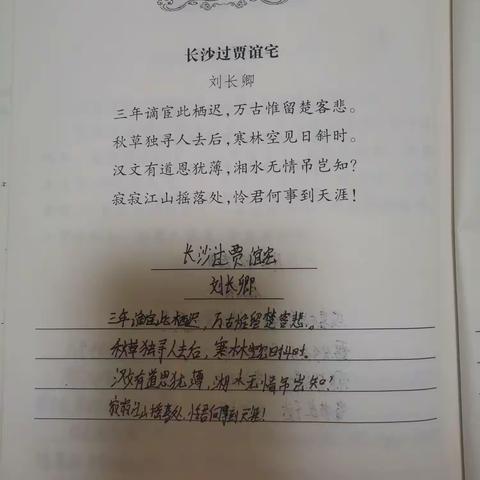 长沙过贾谊宅
刘长卿
三年谪宦此栖迟,万古惟留楚客悲。
秋草独寻人去后,寒林空见日斜时。
汉文有道恩犹薄,湘水无情吊岂知?
寂寂江山摇落处,怜君何事到天涯!
长沙过贾谊宅
刘长卿
三年谪宦此栖迟,万古惟留楚客悲。
秋草独寻人去后,寒林空见日斜时。
汉文有道恩犹薄,湘水无情吊岂知?
寂寂江山摇落处,怜君何事到天涯!